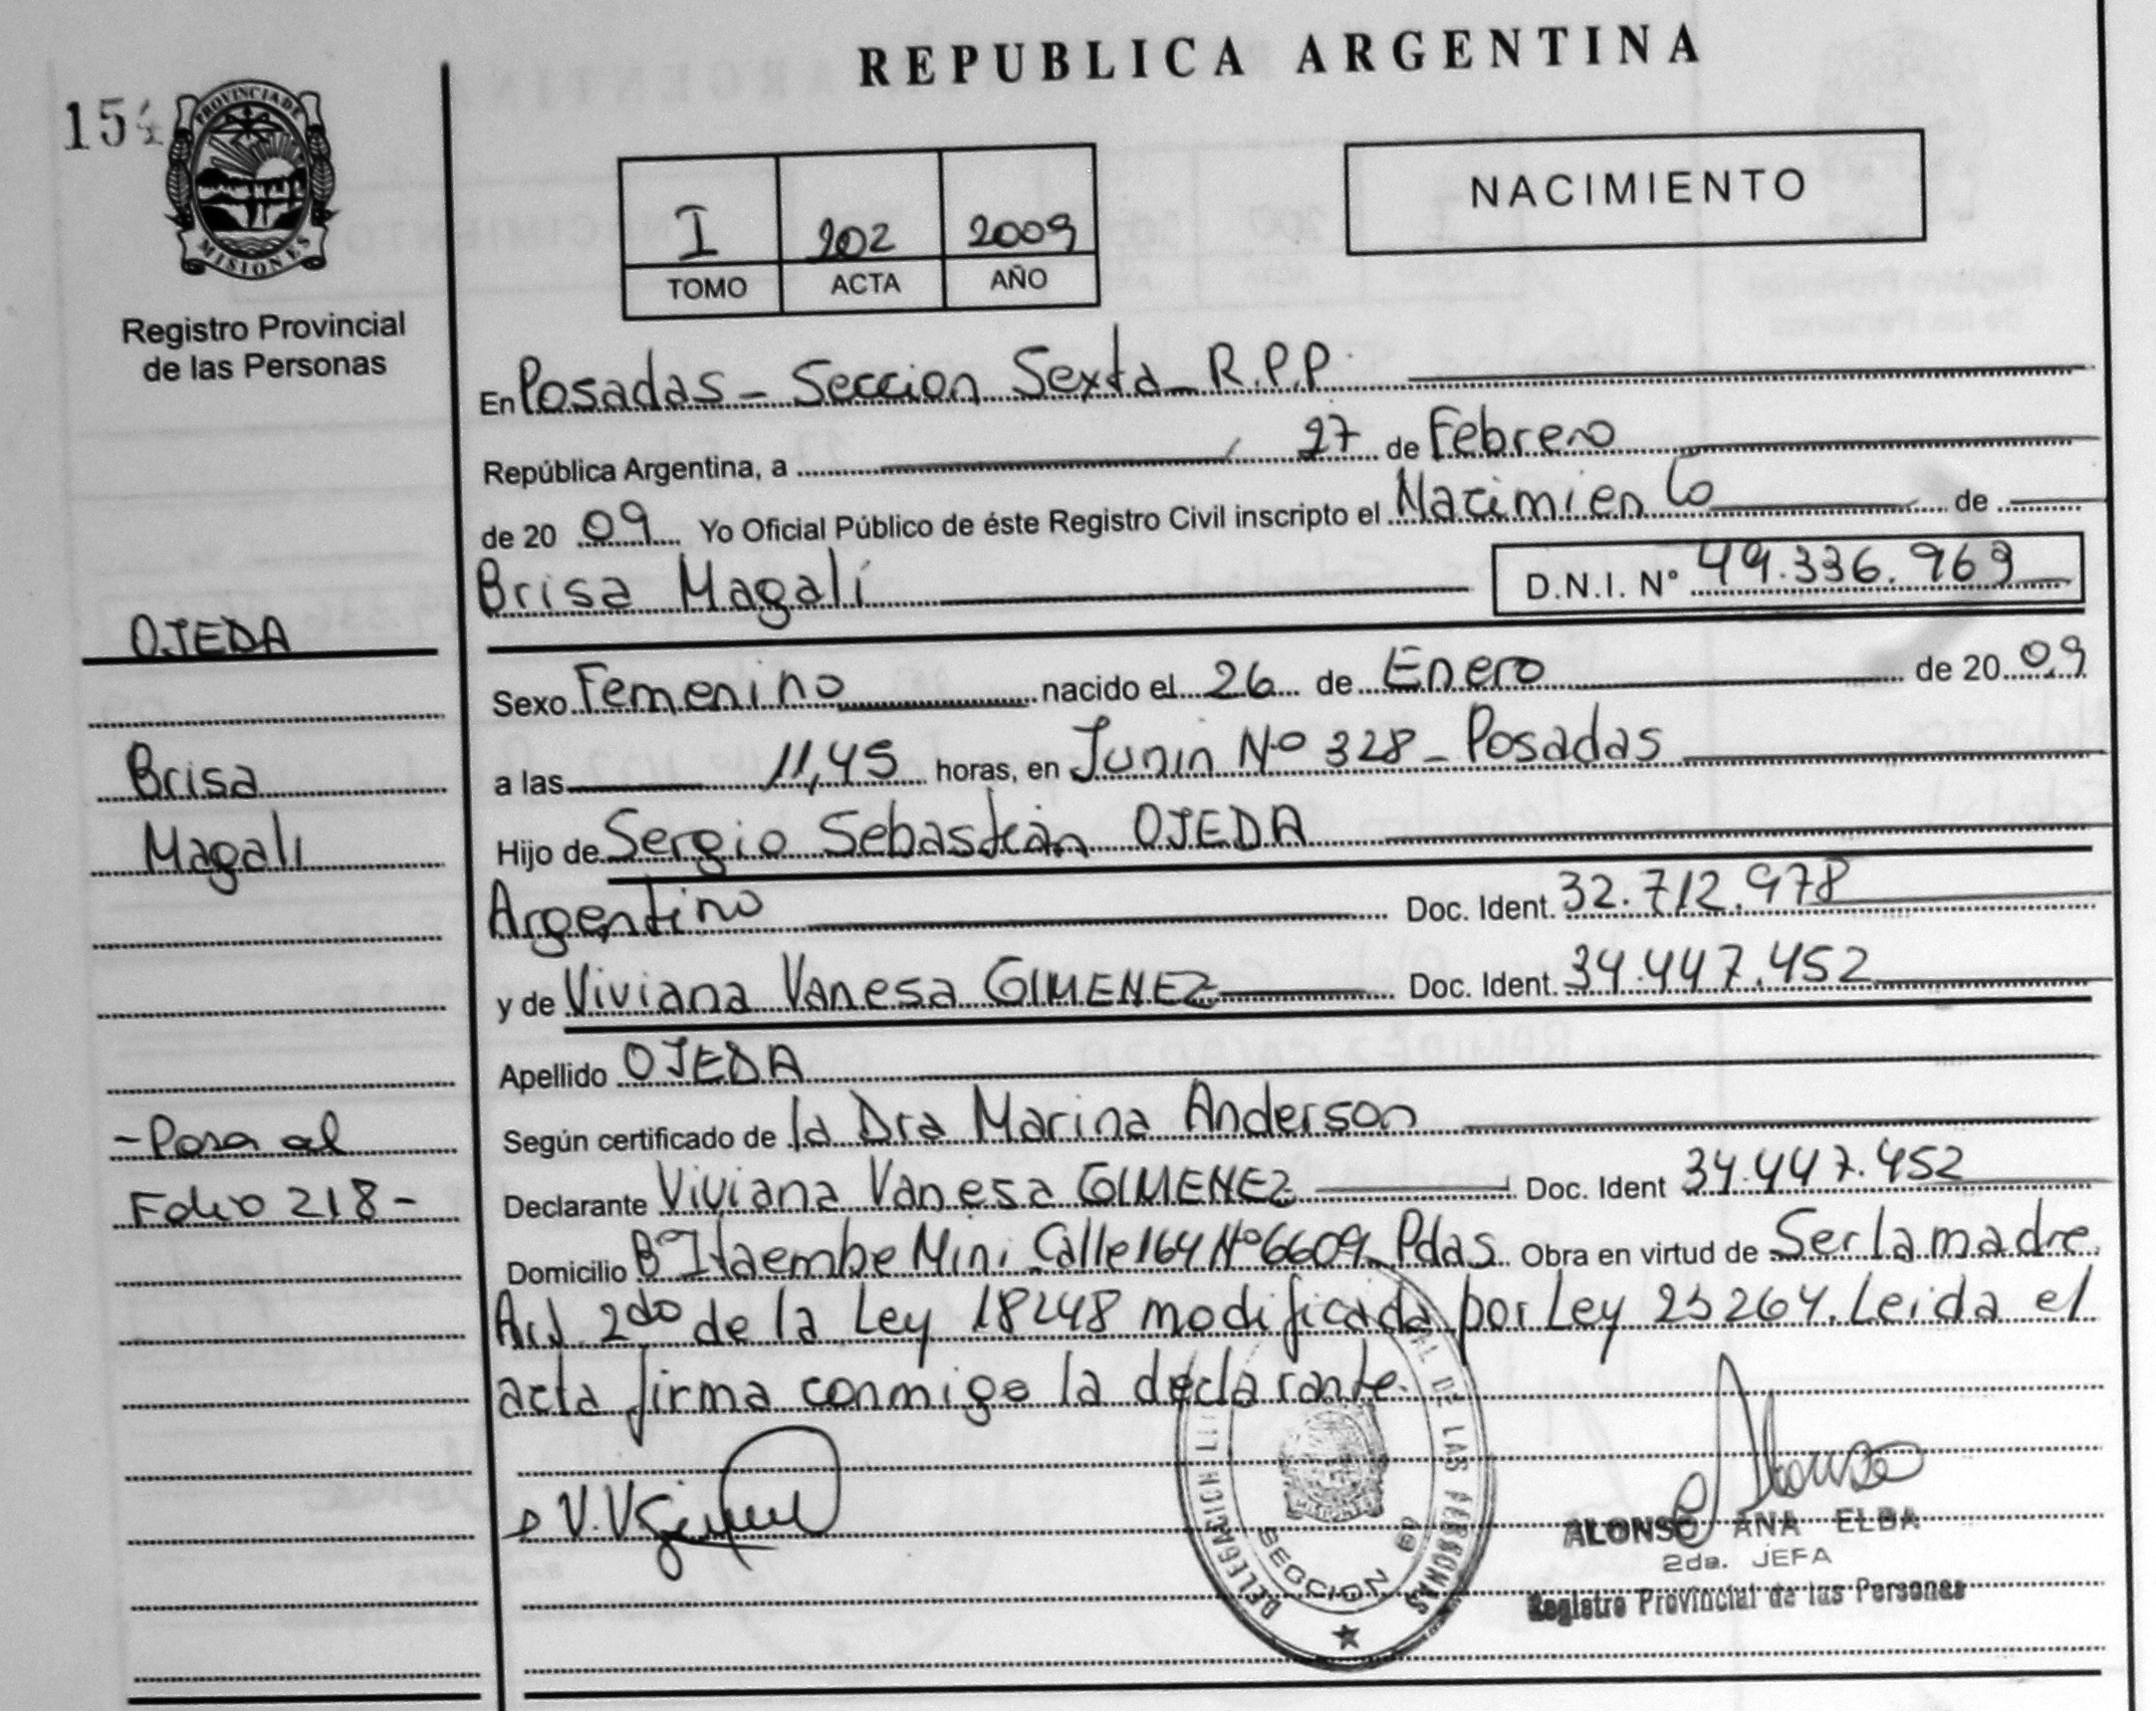 REPUBLICA ARGENTINA
PROVINCIA DE
MISIONES
Registro Provincial
de las Personas
I 202 2009
TOMO ACTA AÑO
NACIMIENTO
En Posadas - Seccion Sexta - R.P.P.
República Argentina, a 27 de Febrero
de 20 09 Yo Oficial Público de éste Registro Civil inscripto el Nacimiento de
Brisa Magalí D.N.I. Nº 49.336.969
OJEDA
Brisa
Magalí
- Pasa al
Folio 218 -
Sexo Femenino nacido el 26 de Enero de 20 09
a las 11,45 horas, en Junin Nº 328 - Posadas
Hijo de Sergio Sebastián OJEDA
Argentino Doc. Ident. 32.712.978
y de Viviana Vanesa GIMENEZ Doc. Ident. 34.447.452
Apellido OJEDA
Según certificado de la Dra Marina Anderson
Declarante Viviana Vanesa GIMENEZ Doc. Ident 34.447.452
Domicilio Bº Itaembe Mini Calle 164 Nº 6609 - Pdas. Obra en virtud de Ser la madre.
Art. 2do de la Ley 18248 modificada por Ley 23264. Leida el
acta firma conmigo la declarante.
DE LAS PERSONAS
SECCION
ALONSO ANA ELBA
2da. JEFA
Registro Provincial de las Personas